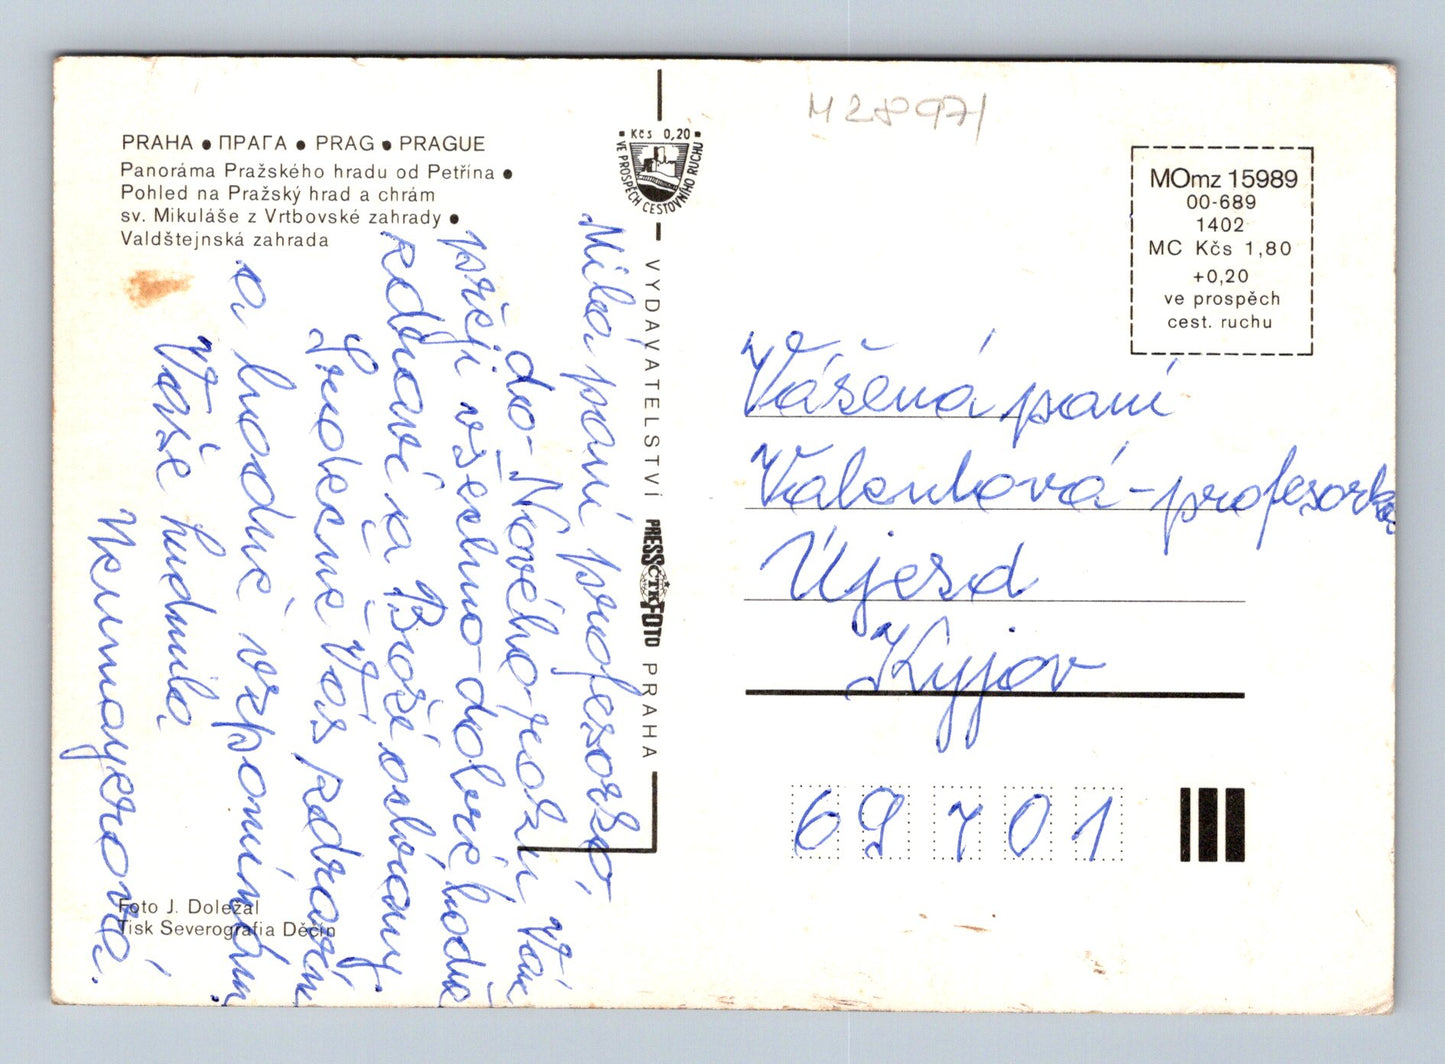 M 28971
PRAHA • ПРАГА • PRAG • PRAGUE
Panoráma Pražského hradu od Petřína •
Pohled na Pražský hrad a chrám
sv. Mikuláše z Vrtbovské zahrady •
Valdštejnská zahrada
Kčs 0,20
VE PROSPĚCH CESTOVNÍHO RUCHU
VYDAVATELSTVÍ PRESSFOTO PRAHA
ČTK
MOmz 15989
00-689
1402
MC Kčs 1,80
+0,20
ve prospěch
cest. ruchu
Milá paní profesorko,
do Nového roku Vám
přeji všechno dobré hodně
zdraví a Boží ochrany
Srdečně Vás zdravím
a hodně vzpomínám
Vaše Ludmila
Neumayerová.
Vážená paní
Valentová - profesorka
Újezd
Kyjov
69701
Foto J. Doležal
Tisk Severografia Děčín